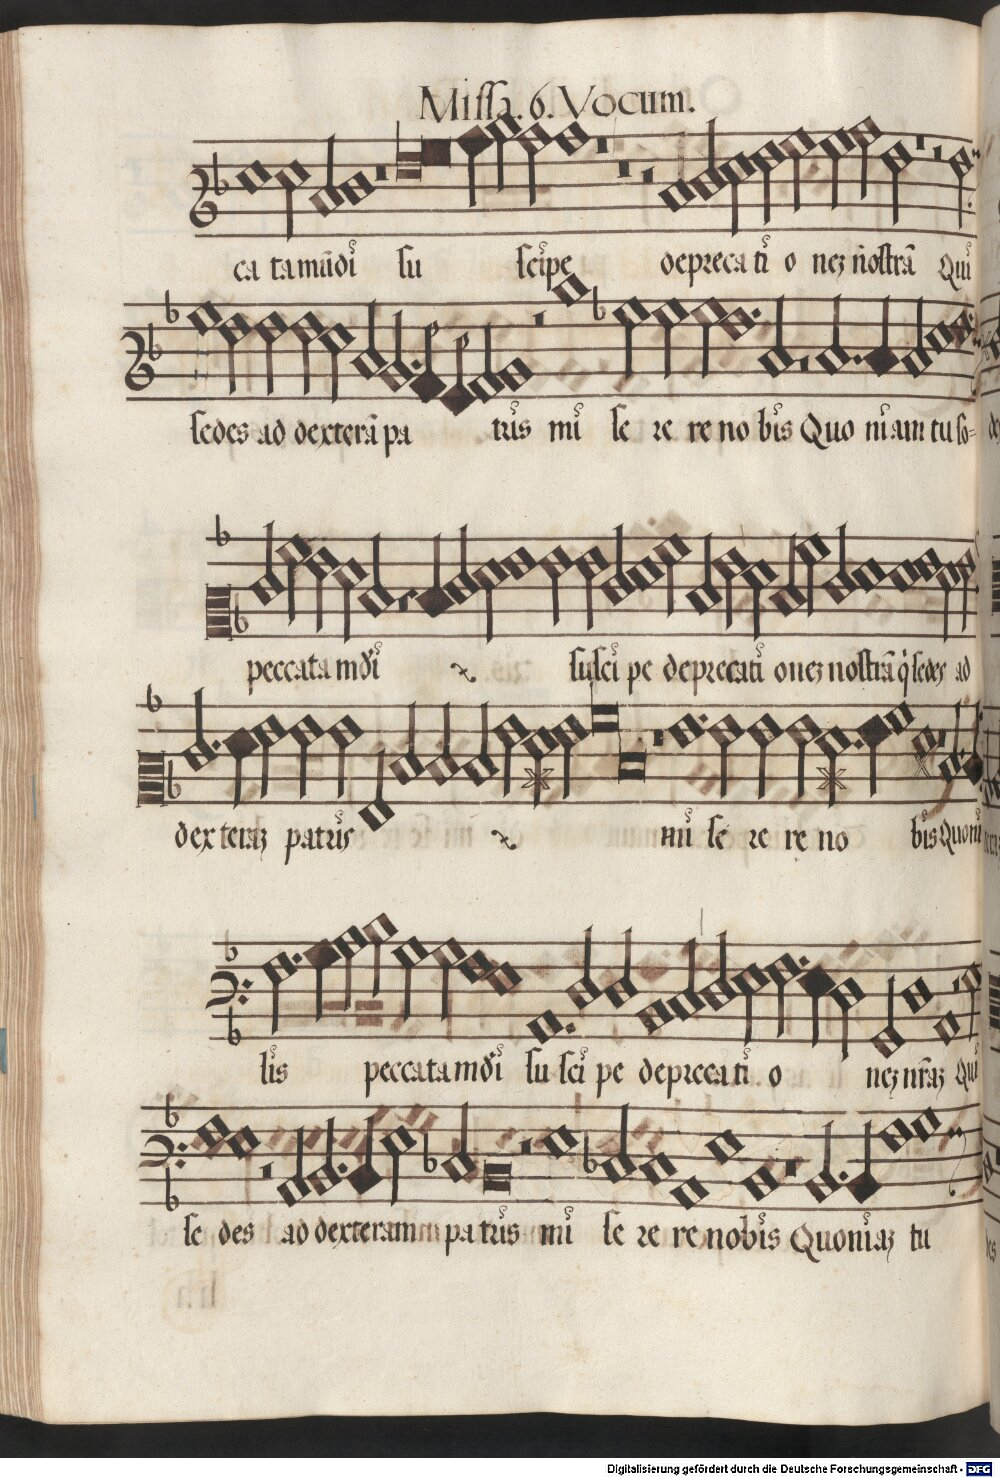 Missa. 6. Vocum.
ca ta mũdi su scipe deprecati o nez ñostrã Qui
sedes ad dexterã pa tris mi se re re no bis Quo niam tu so=
peccata mdi suscipe deprecati onez nostrã q̃ sedes ad
dexteraz patris mi se re re no bis Quoni
lis peccata mdi suscipe deprecati o nez nr̃az Qui
se des ad dexteram patris mi se re re nobis Quoniaz tu
Digitalisierung gefördert durch die Deutsche Forschungsgemeinschaft - DFG